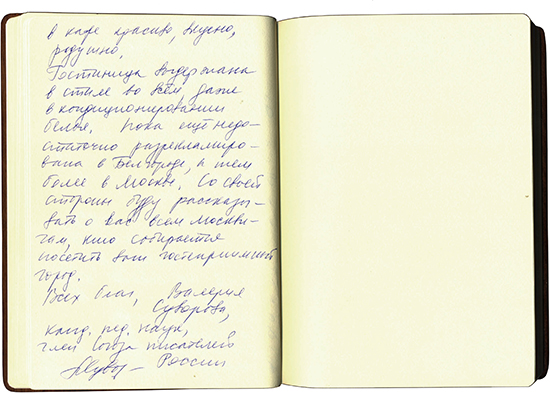 в кафе красиво, вкусно,
радушно.
Гостиница выдержана
в стиле во всём, даже
в кондиционировании
белья. Пока ещё недо-
статочно разрекламиро-
вана в Белгороде, а тем
более в Москве. Со своей
стороны буду рассказы-
вать о вас всем москви-
чам, кто собирается
посетить ваш гостеприимный
город.
Всех благ, Валерия
Суворова,
канд. пед. наук,
член Союза писателей
России